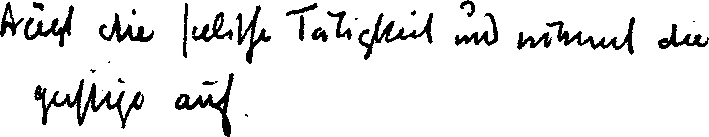 die seelische Tätigkeit und nimmt die
geistige auf.